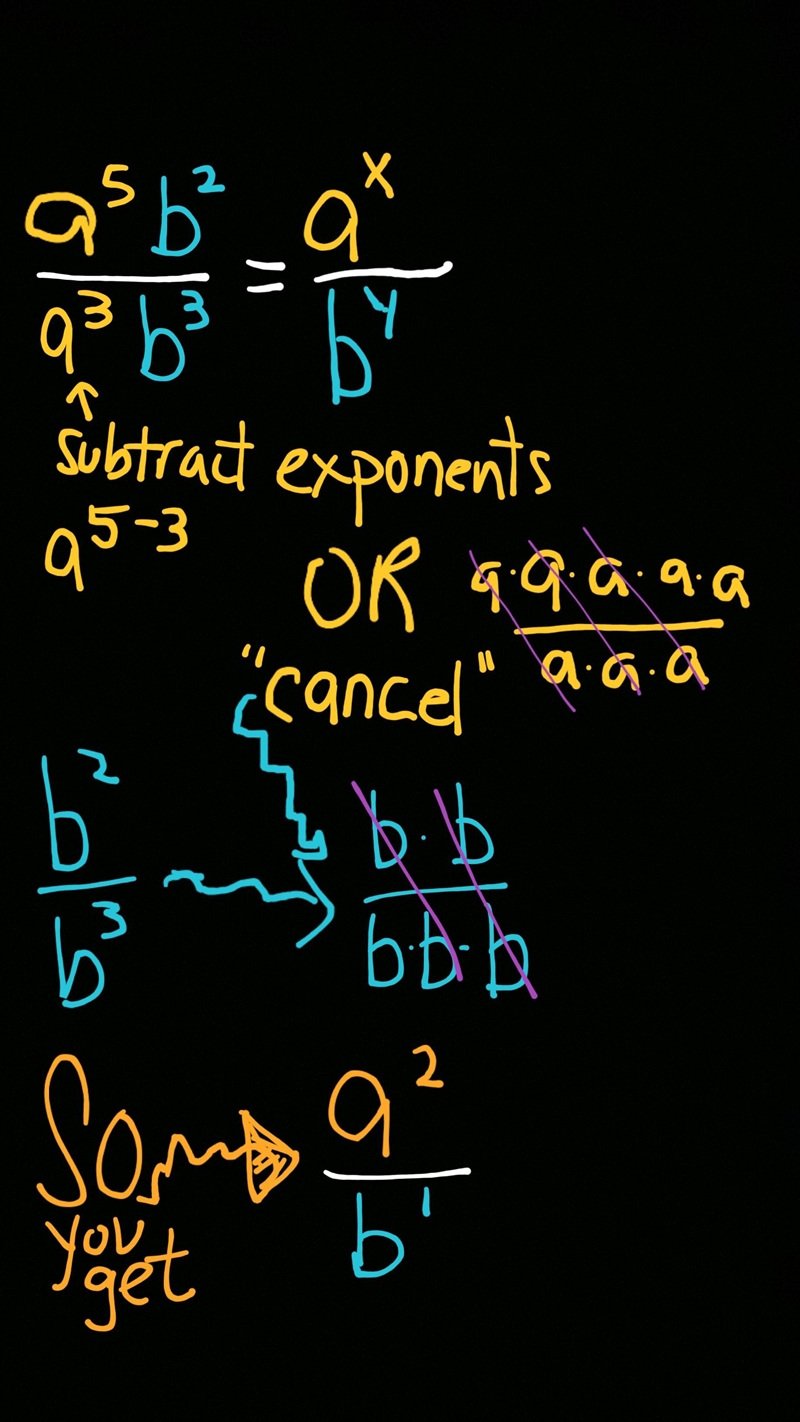 a⁵ b² / a³ b³ = aˣ / bʸ
↑
subtract exponents
a⁵⁻³
OR
a·a·a·a·a / a·a·a
"cancel"
b² / b³ → b·b / b·b·b
SO → a² / b¹
you
get